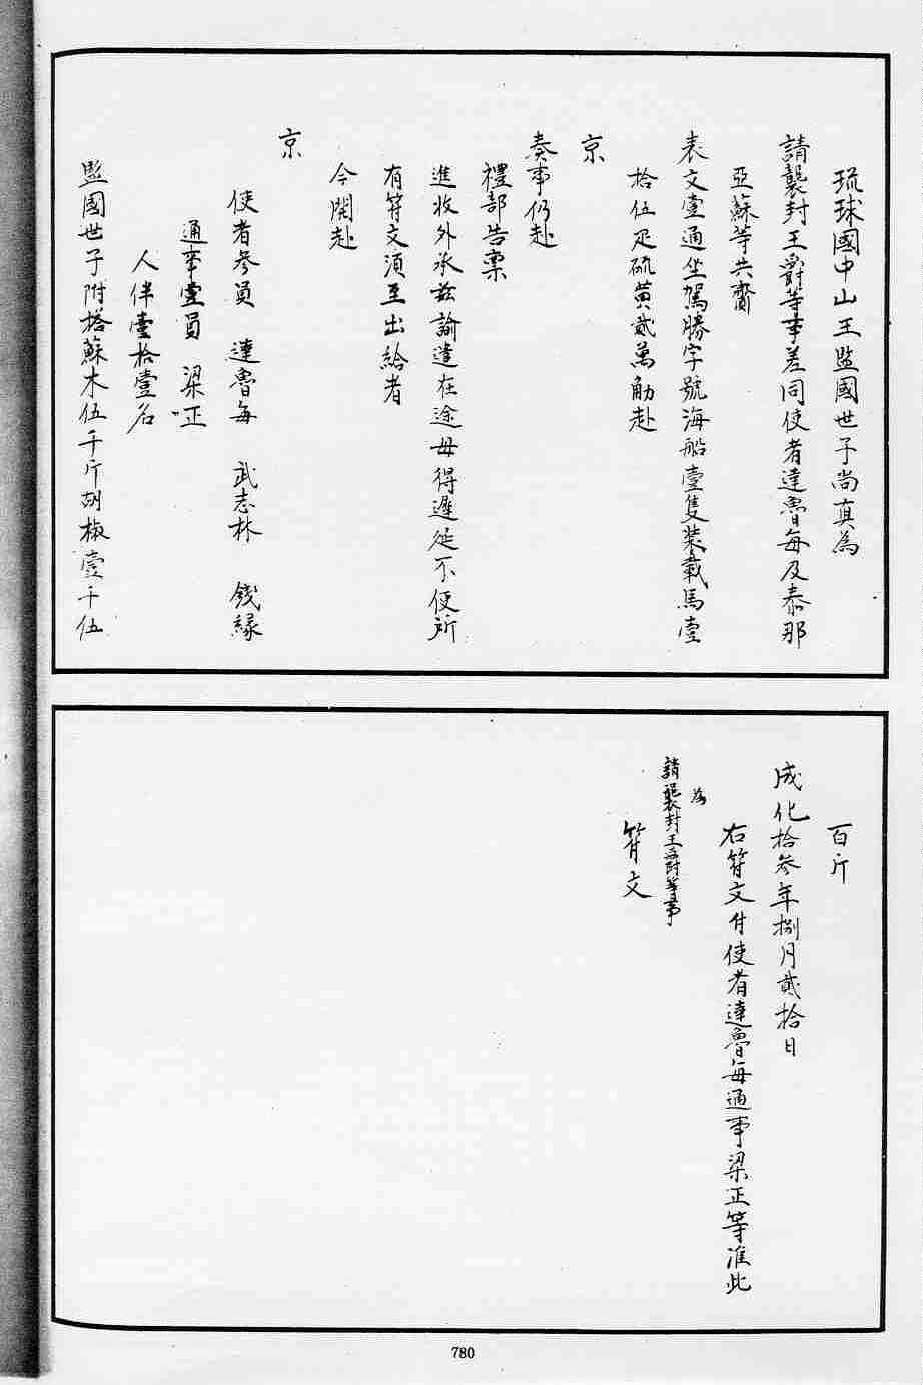 琉球國中山王監國世子尚真為
請襲封王爵等事差同使者達魯每及泰那
亞蘇等共齎
表文壹通坐駕勝字號海船壹隻裝載馬壹
拾伍疋硫黄貳萬觔赴
京
奏事仍赴
禮部告稟
進收外承茲諭遣在途毋得遲延不便所
有符文須至出給者
今開赴
京
使者參員 達魯每 武志林 錢縁
通事壹員 梁正
人伴壹拾壹名
監國世子附搭蘇木伍千斤胡椒壹千伍
百斤
成化拾參年捌月貳拾日
右符文付使者達魯每通事梁正等准此
為
請襲封王爵等事
符文
780